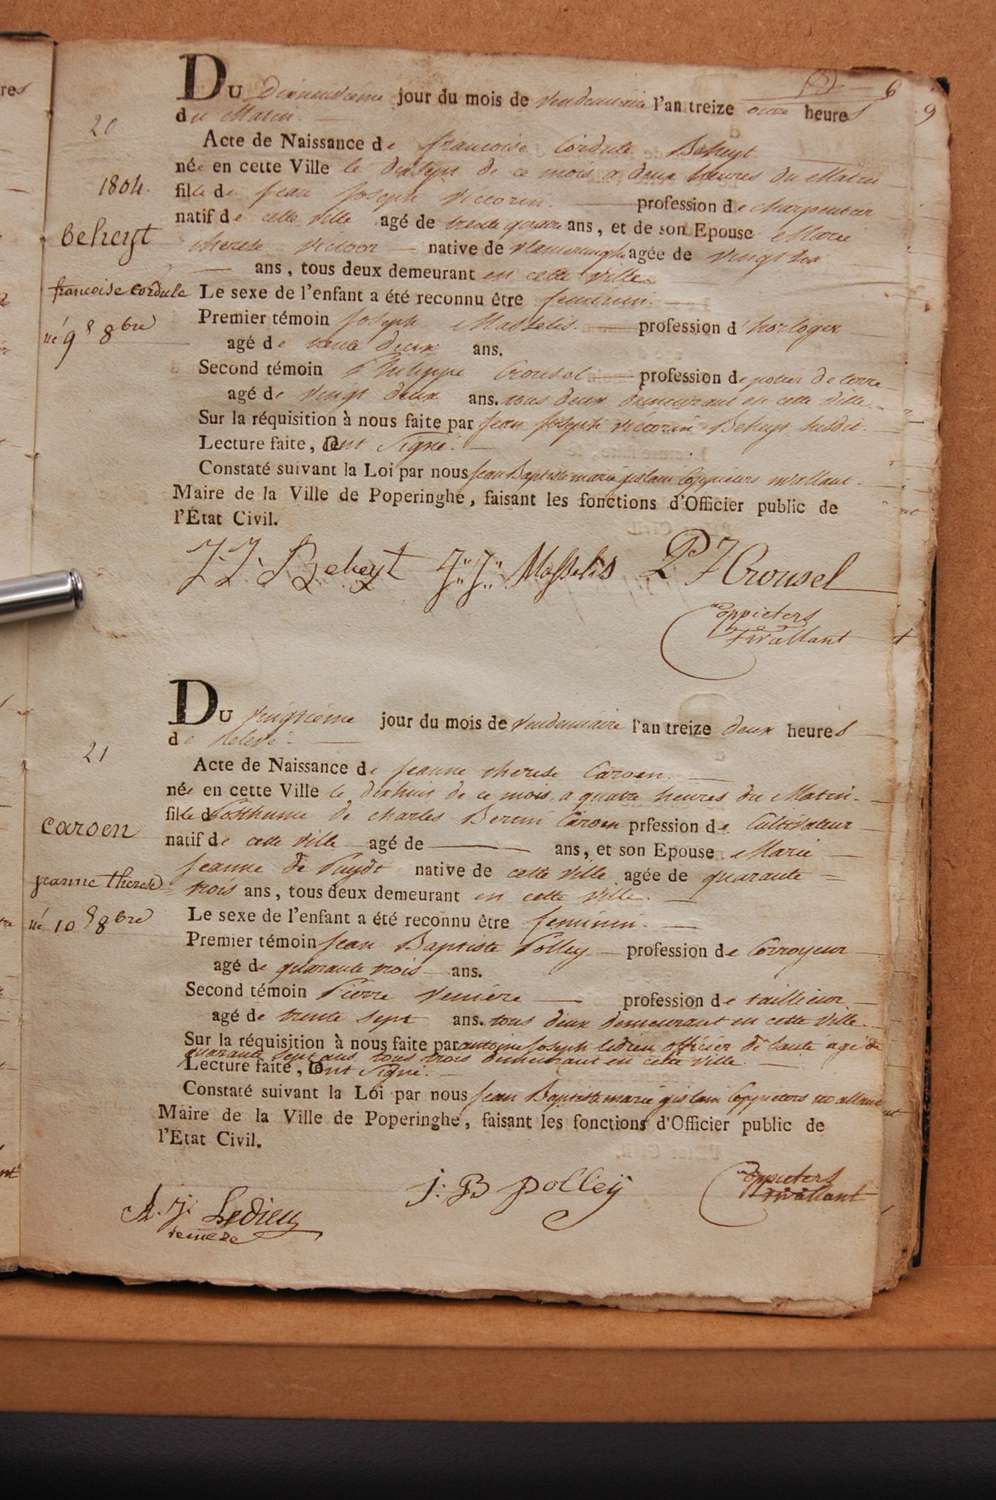 (3) 6
9
res
20
1804.
Beheyt
francoise cordule
né 9 8bre
Du Dixneuvieme jour du mois de Vendemiaire l'an treize onze heures
du Matin.
Acte de Naissance de francoise Cordule Beheyt
née en cette Ville le dixsept de ce mois a deux heures du Matin
fille de Jean Joseph victorin profession de charpentier
natif de cette ville agé de trente quatre ans, et de son Epouse Marie
therese native de agée de vingt six
ans, tous deux demeurant en cette ville.
Le sexe de l'enfant a été reconnu être feminin.
Premier témoin Joseph Masselis profession d'horloger
agé de deux ans.
Second témoin Philippe Crousel profession de potier de terre
agé de vingt deux ans. tous deux demeurant en cette ville.
Sur la réquisition à nous faite par Jean Joseph victorin Beheyt susdit.
Lecture faite, ont signé.
Constaté suivant la Loi par nous Jean Baptiste marie gislain Coppieters wallant
Maire de la Ville de Poperinghe, faisant les fonctions d'Officier public de
l'État Civil.
J. J. Beheyt J: J: Masselis P J Crousel
Coppieters
twallant
21
caroen
jeanne therese
né 10 8bre
Du Vingtieme jour du mois de Vendemiaire l'an treize deux heures
de relevé.
Acte de Naissance de jeanne therese Caroen.
née en cette Ville le dixhuit de ce mois a quatre heures du Matin.
fille d Posthume de charles Caroen prfession de Cultivateur
natif de cette ville agé de ans, et son Epouse Marie
Jeanne de Puydt native de cette ville agée de quarante
trois ans, tous deux demeurant en cette ville.
Le sexe de l'enfant a été reconnu être feminin.
Premier témoin Jean Baptiste Polley profession de Corroyeur
agé de quarante trois ans.
Second témoin Pierre profession de taillieur
agé de trente sept ans. tous deux demeurant en cette ville.
Sur la réquisition à nous faite par antoine Joseph ledieu officier de santé agé de
quarante sept ans, tous trois demeurant en cette ville
Lecture faite, ont signé.
Constaté suivant la Loi par nous Jean Baptiste marie gislain Coppieters wallant
Maire de la Ville de Poperinghe, faisant les fonctions d'Officier public de
l'État Civil.
A. J. Ledieu j: B polley Coppieters
twallant